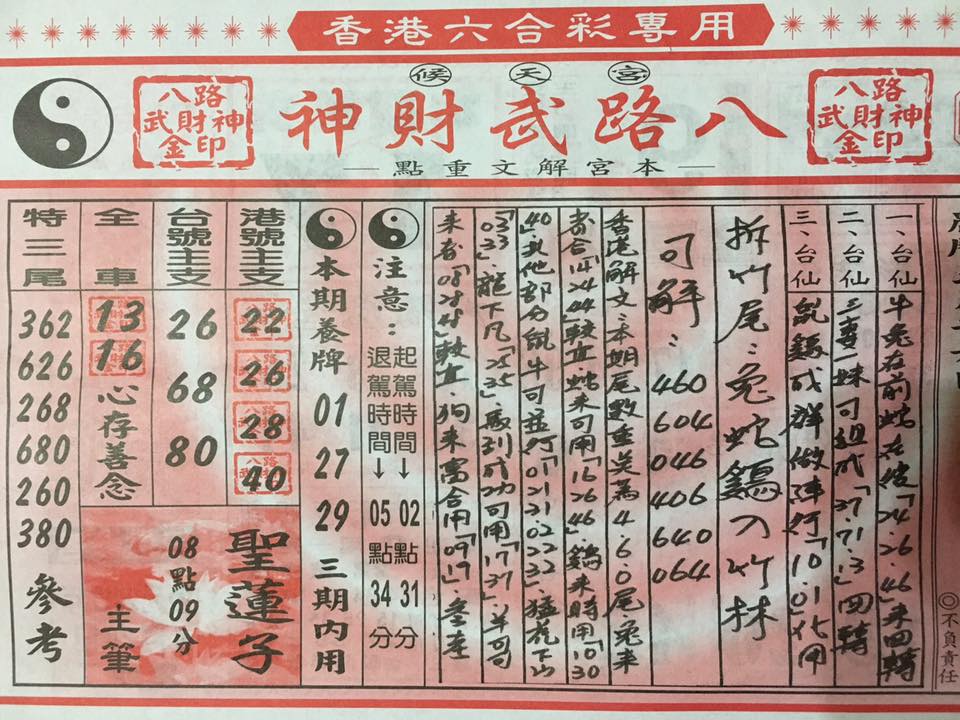 香港六合彩專用
宮天候
八路武財神
本宮解文重點
八路
武財神
金印
八路
武財神
金印
一、台仙 牛兔在前蛇在後「24.26.46」来四轉
二、台仙 三專一妹可組成「37.71.13」四轉
三、台仙 說鷄成群做陣行「10.01」化用
拆竹尾：兔蛇鷄入竹林
可解：
460
604
046
406
640
064
香港解文：本期尾數重美為4.6.0尾，兔来
可合「14.24.44」較重，蛇来可用「16.26.46」，鷄来時用「10.30
40」其他部分說牛可並行「01.21.02.22.32」猛花下
033」龍下凡「25.35」馬到成功可用「17.37」羊可
来「08.28」較重，狗来髙合用「09.19」
注意：
起駕時間↓02點31分
退駕時間↓05點34分
本期養牌
01
27
29
三期內用
港號主支
22
26
28
40
台號主支
26
68
80
聖蓮子
08點09分
主筆
全車
13
16
心存善念
特三尾
362
626
268
680
260
380
參考
◎不負責任